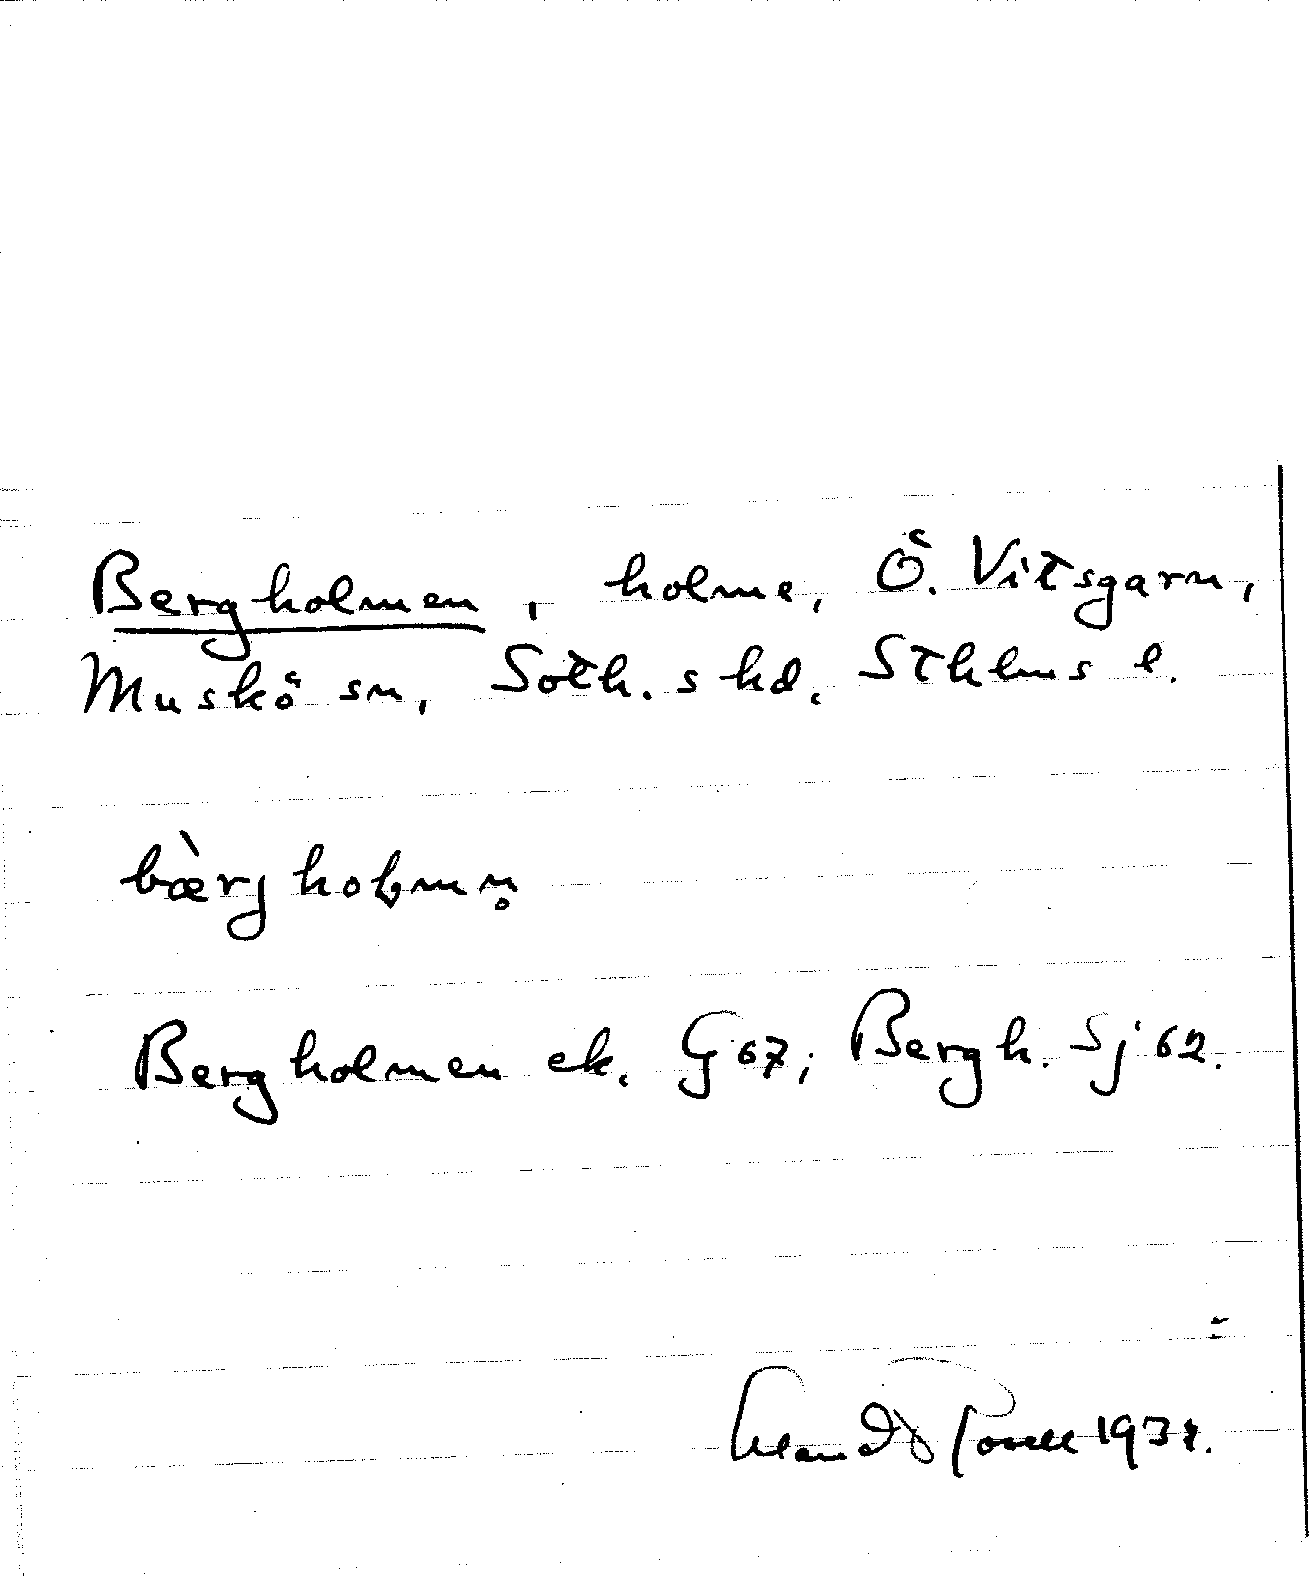 Bergholmen, holme, Ö. Vitsgarn,
Muskö sn, Soth. s hd. Sthlms l.
bæ̀rjhoɫmn̥
Bergholmen ek. G 67; Bergh. Sj 62.